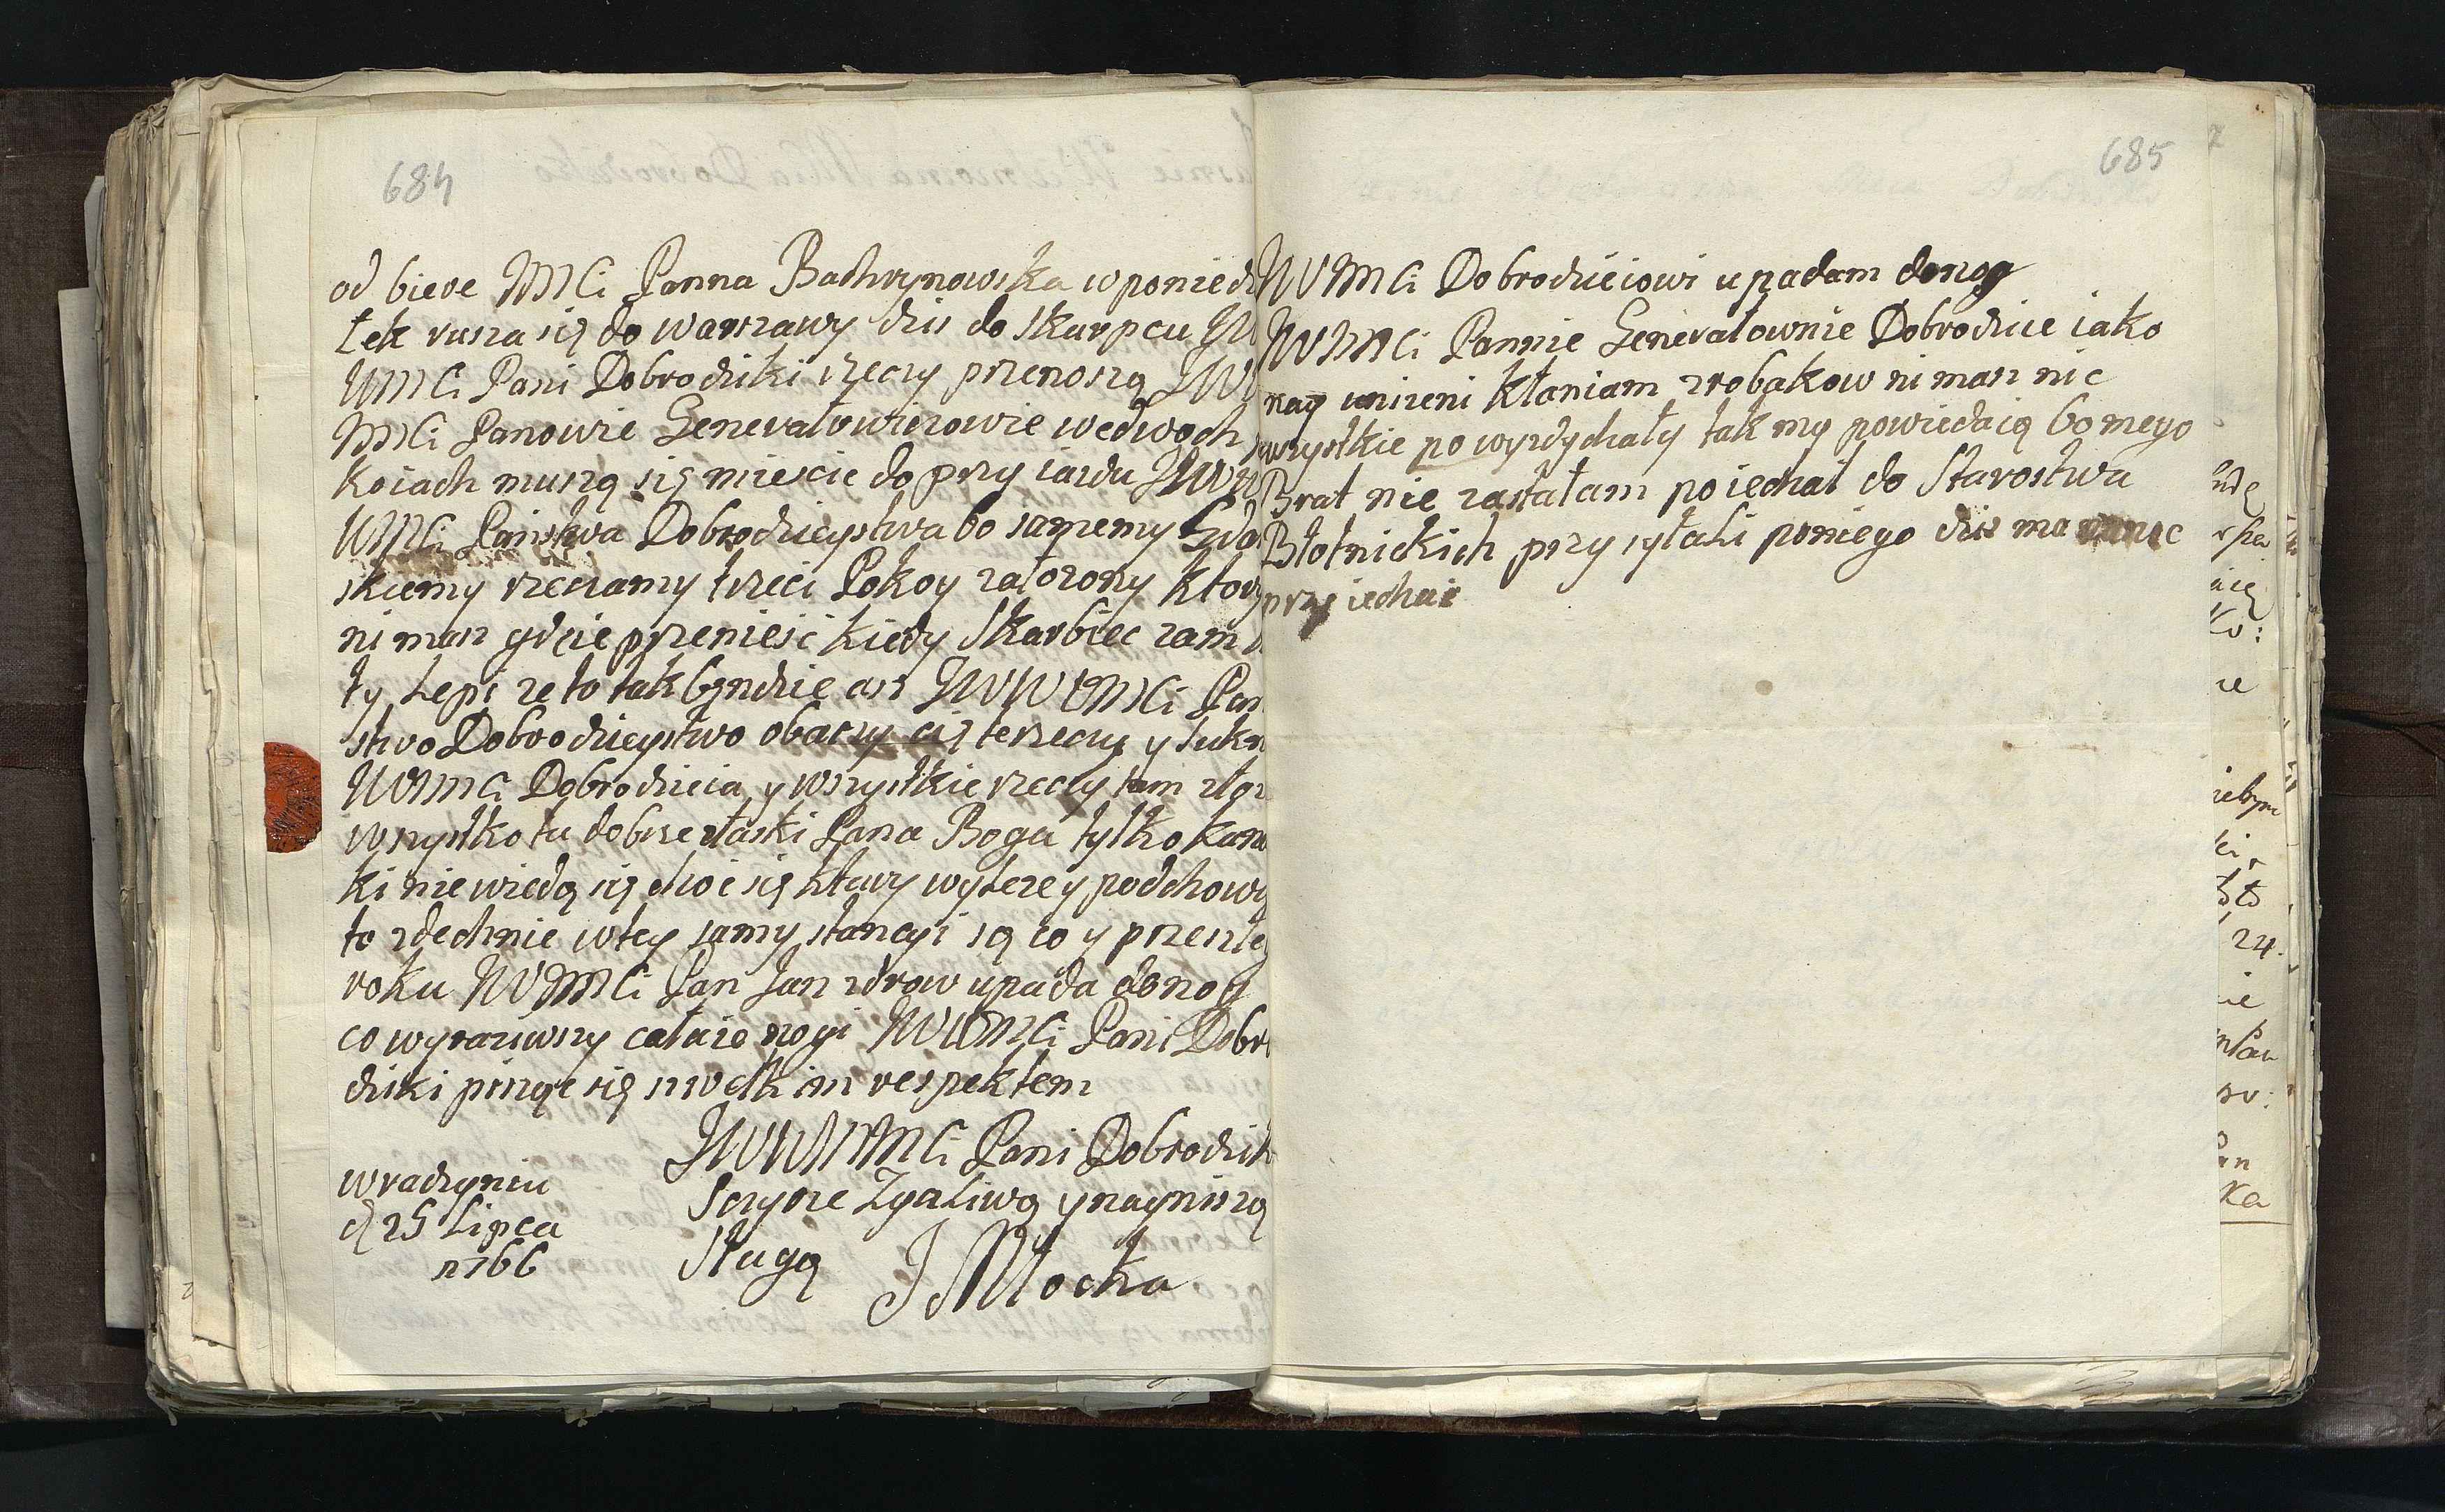 684
od biere JMCi Panna Bachrynowska w poniedz
łek rusza się do warszawy dzis do skarpcu JW
WMCi Pani Dobrodziki rzeczy przenoszą JW
JMCi Panowie Generałowiczowie wedwoch
koiach muszą się miescic do przy iazdu JWW
WMCi Panstwa Dobrodzieystwa bo samemy
skiemy rzeczamy trzeci Pokoy załozony ktory
ni masz gdzie przeniesc kiedy Skarbiec zam
ty Lepi ze to tak byndzie asz JWWWMCi Pan
stwo Dobrodzieystwo obaczy cię te rzeczy y sukn
WMCi Dobrodzieia y wszystkie rzeczy tam złoz
wszystko tu dobrze złaski Pana Boga tylko kana
ki nie wiedą się choc się ktury wyleze y podchowy
to zdechnie w tey samy stancyi są co y przeszłe
roku JWMCi Pan Jan zdrow upada do nog
co wyraziwszy całuie nogi JWWMCi Pani Dobro
dziki piszę się z wolkim respektem
JWWWMCi Pani Dobrodzik
Sczyrze Zyczliwą y nayniszą
Sługą
J Młocka
w radzyniu
d 25 Lipca
1766
685
JWMCi Dobrodzieiowi upadam do nog
JWMCi Pannie Generałownie Dobrodzice iako
nay unizeni kłaniam z robakow ni masz nic
wszystkie powyzdychały tak my powiedaią bo mego
Brat nie zastałam poiechał do Starostwa
Błotnickich przy syłali poniego dzis ma
przy iechac